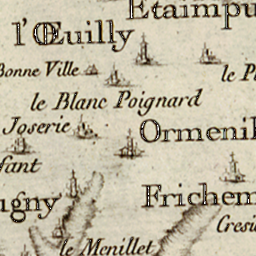 Etaimpu
l'Œuilly
Bonne Ville
le P
le Blanc Poignard
Joserie
Ormenil
fant
igny
Frichem
Cresi
le Menillet